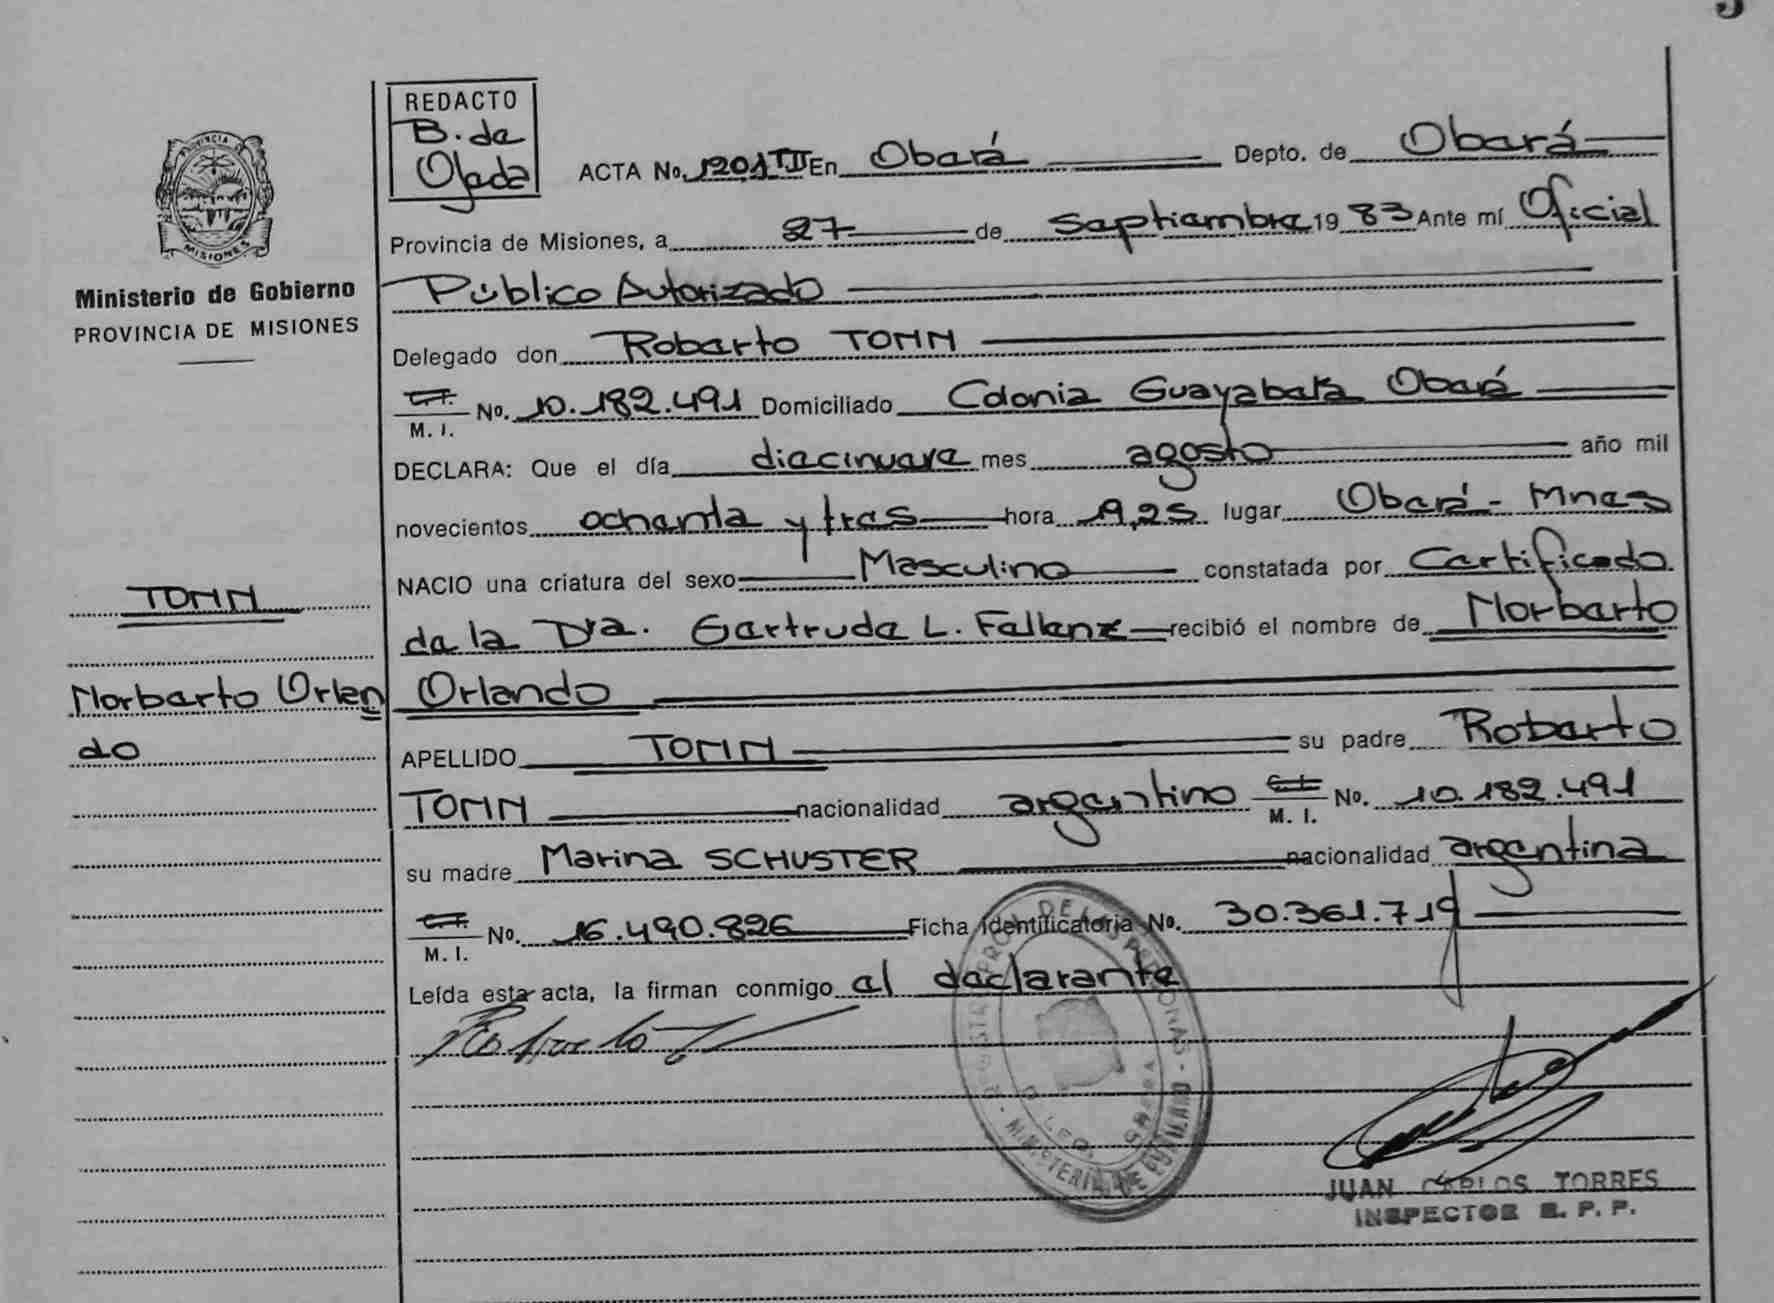 REDACTO
B. de
Ojeda
PROVINCIA DE
MISIONES
Ministerio de Gobierno
PROVINCIA DE MISIONES
ACTA No. 1201 TII En Oberá Depto. de Oberá
Provincia de Misiones, a 27 de Septiembre 19 83 Ante mí Oficial
Público Autorizado
Delegado don Roberto TONN
C.I. M. I. No. 10.182.491 Domiciliado Colonia Guayabera Oberá
DECLARA: Que el día diecinueve mes agosto año mil
novecientos ochenta y tres hora 19,25 lugar Oberá - Mnes
NACIO una criatura del sexo Masculino constatada por Certificado
de la Dra. Gertrude L. Fallenz recibió el nombre de Norberto
Orlando
TONN
Norberto Orlan
do
APELLIDO TONN su padre Roberto
TONN nacionalidad argentino C.I. M. I. No. 10.182.491
su madre Marina SCHUSTER nacionalidad argentina
C.I. M. I. No. 16.490.826 Ficha Identificatoria No. 30.361.719
Leída esta acta, la firman conmigo el declarante
JUAN CARLOS TORRES
INSPECTOR R. P. P.